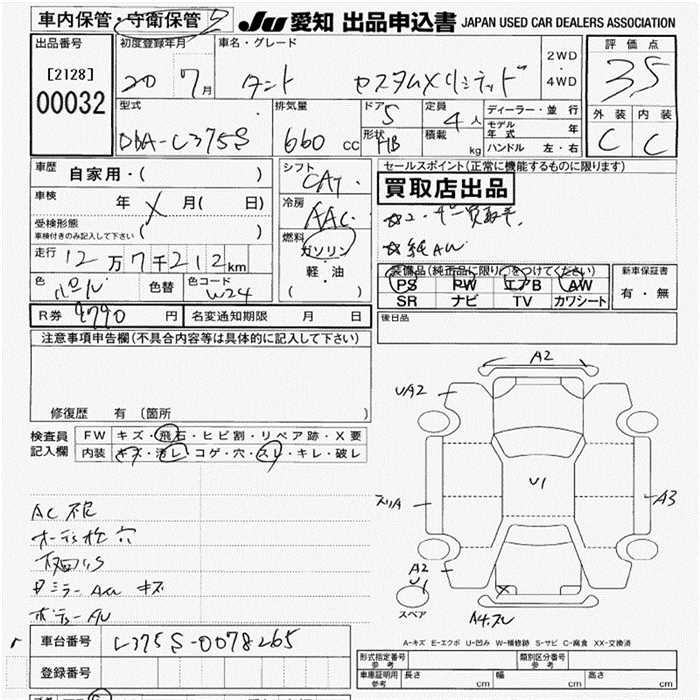 車内保管・守衛保管
JU 愛知 出品申込書 JAPAN USED CAR DEALERS ASSOCIATION
出品番号
[2128]
00032
初度登録年月
20 7月
車名・グレード
タント カスタムXリミテッド
2WD
・
4WD
評価点
3.5
外装 内装
C C
型式
DBA-L375S
排気量
660 cc
ドア 5
形状 HB
定員 4人
積載 kg
ディーラー・並行
モデル年式 年
ハンドル 左・右
車歴 自家用・( )
車検 年 X 月( 日)
受検形態
車検付きのみ記入して下さい ( )
走行 12万7千212km
色 パール 色替 色コード W24
シフト CAT
冷房 AAC
燃料
ガソリン
・
軽・油
( )
セールスポイント(正常に機能するものに限ります)
買取店出品
☆ユーザー買取車
☆純AW
装備品(純正品に限り○をつけてください)
PS PW エアB AW
SR ナビ TV カワシート
新車保証書
有・無
R券 9790 円 名変通知期限 月 日
後日品
注意事項申告欄(不具合内容等は具体的に記入して下さい)
修復歴 有 (箇所 )
検査員記入欄
FW キズ・飛石・ヒビ割・リペア跡・X要
内装 キズ・汚レ・コゲ・穴・スレ・キレ・破レ
AC不良
オーディオ枠穴
ミラー AW キズ
ボディーAU
A2
UA2
U1
ズリA
A3
A2
U1
スペア
A-キズ E-エクボ U-凹み W-補修跡 S-サビ C-腐食 XX-交換済
車台番号 L375S-0078265
登録番号
形式指定番号参考 類別区分番号参考
車庫証明用参考 長さ cm 幅 cm 高さ cm